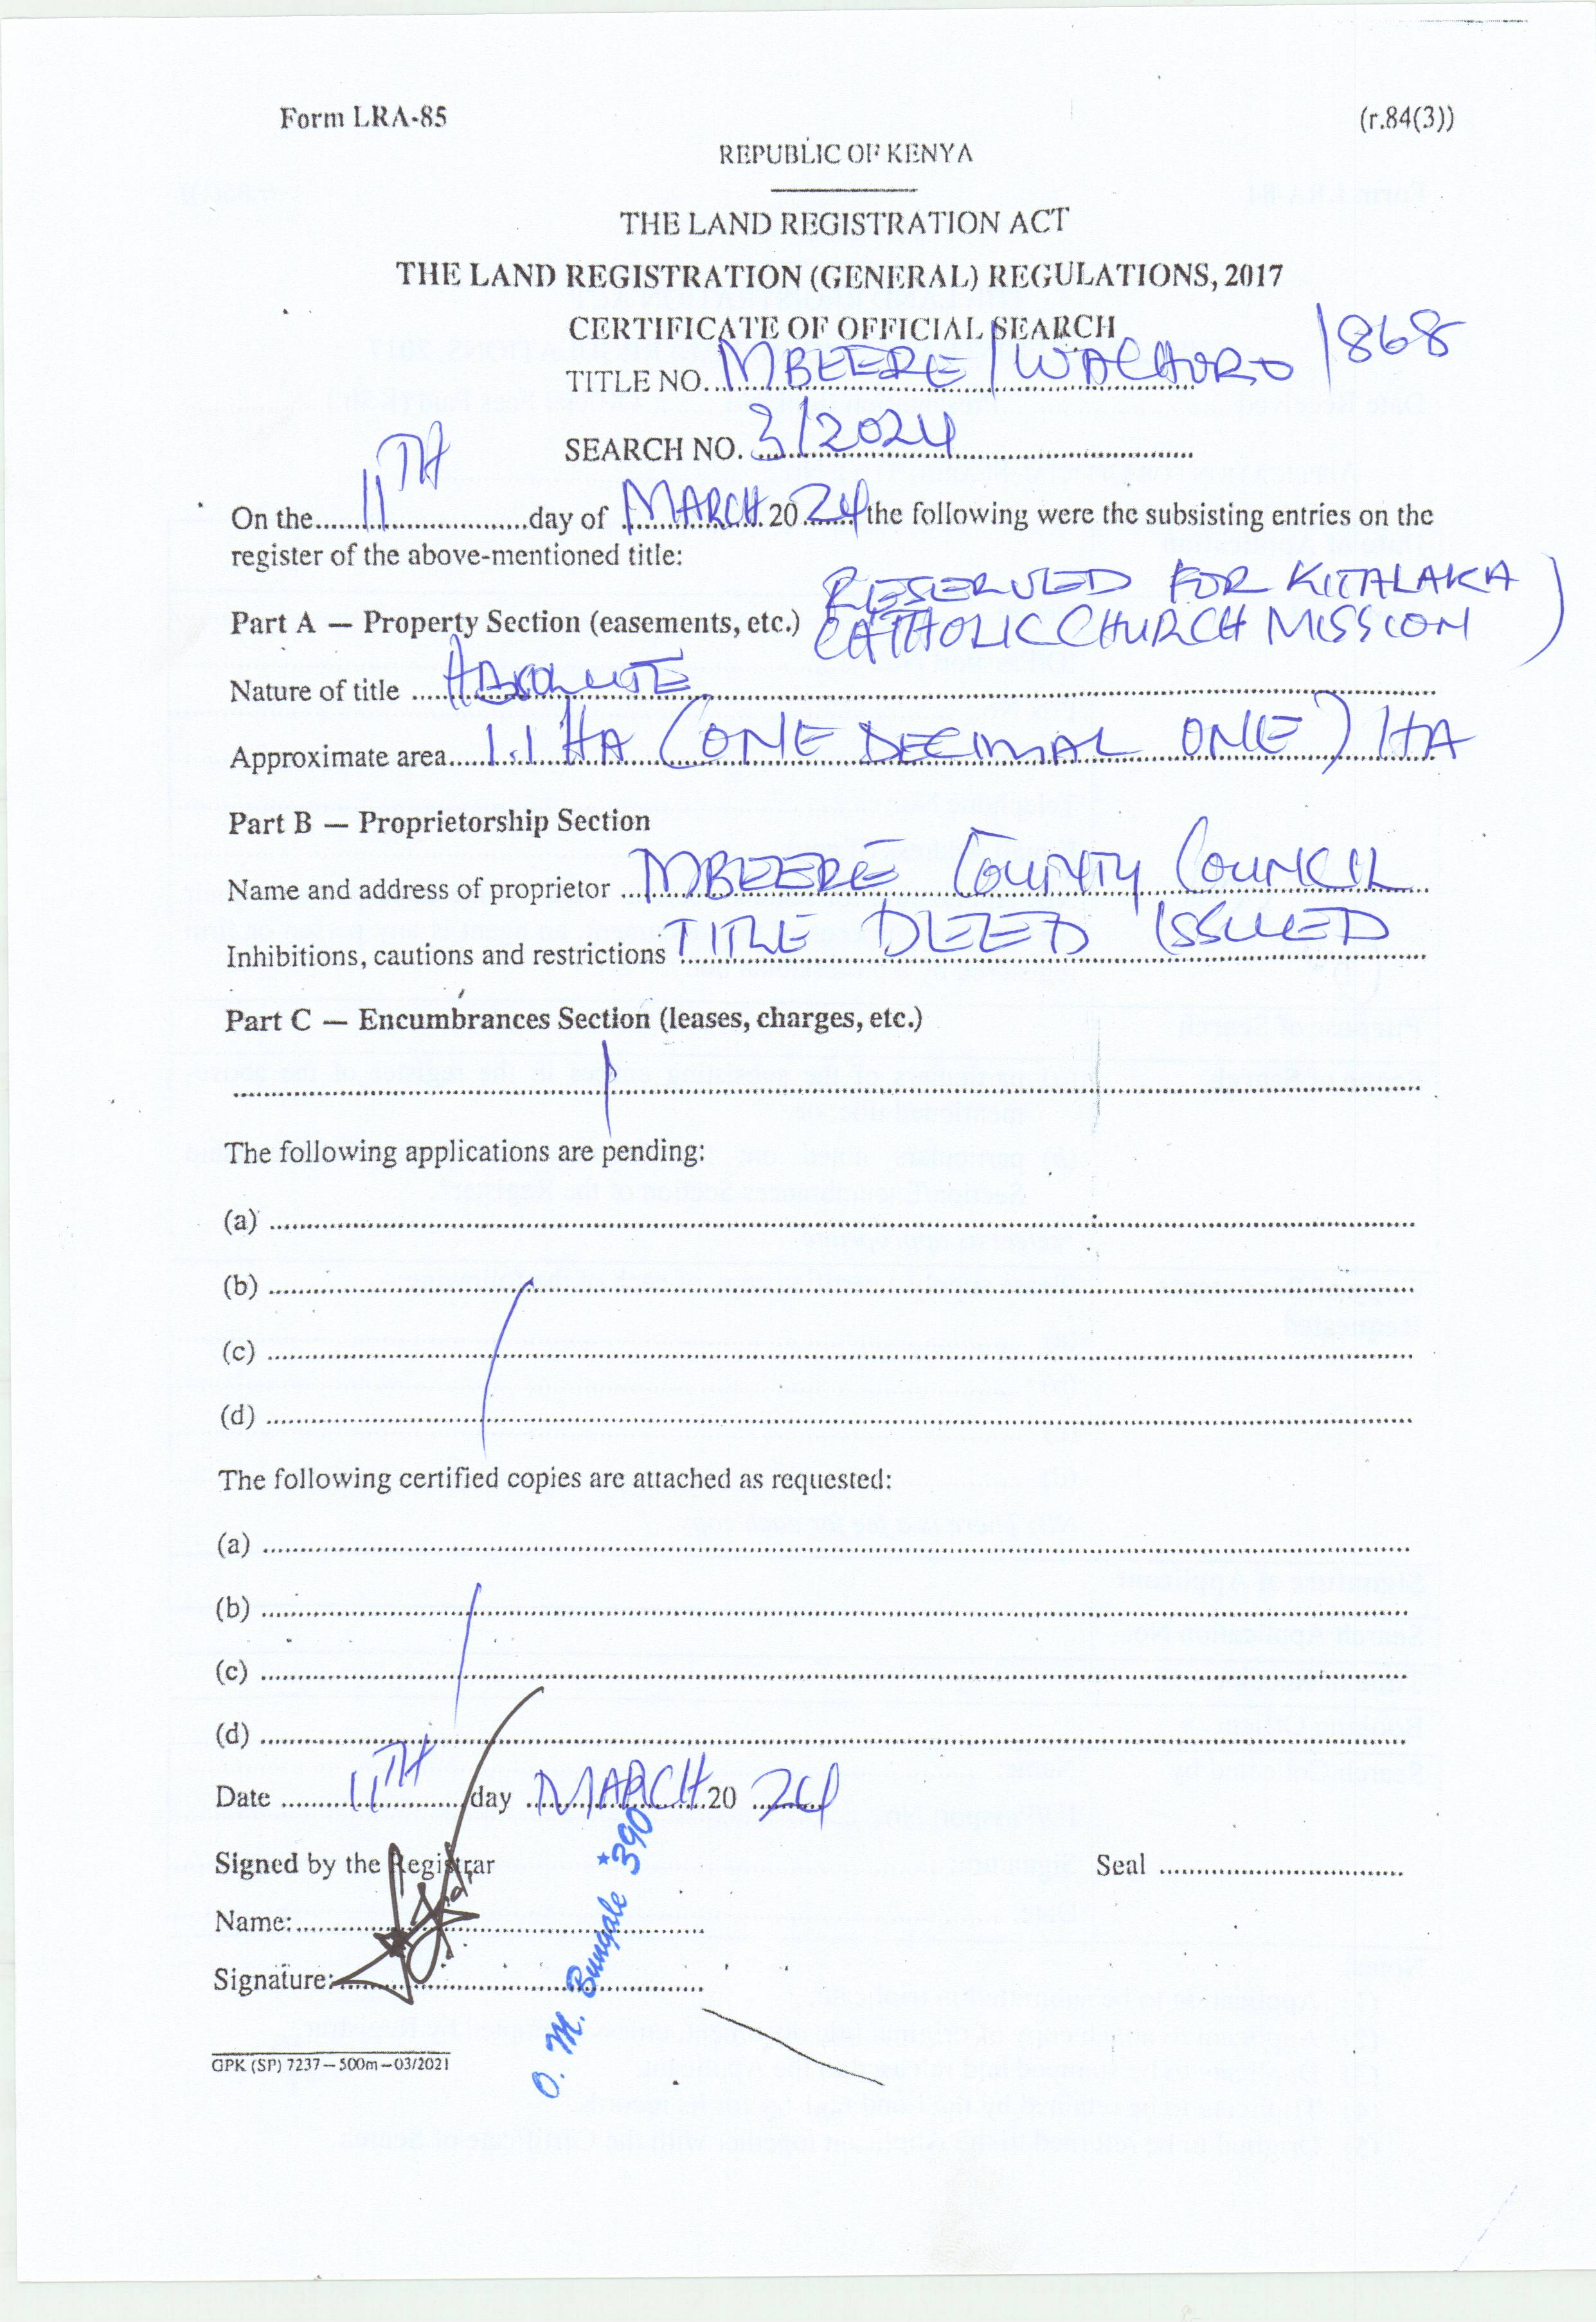 Form LRA-85 (r.84(3))
REPUBLIC OF KENYA
THE LAND REGISTRATION ACT
THE LAND REGISTRATION (GENERAL) REGULATIONS, 2017
CERTIFICATE OF OFFICIAL SEARCH
TITLE NO. MBEERE/WACHORO/868
SEARCH NO. 3/2024
On the 11TH day of MARCH 2024 the following were the subsisting entries on the
register of the above-mentioned title:
RESERVED FOR KITALAKA
Part A — Property Section (easements, etc.) CATHOLIC CHURCH MISSION)
Nature of title ABSOLUTE
Approximate area 1.1 HA (ONE DECIMAL ONE) HA
Part B — Proprietorship Section
Name and address of proprietor MBEERE COUNTY COUNCIL
Inhibitions, cautions and restrictions TITLE DEED ISSUED
Part C — Encumbrances Section (leases, charges, etc.)
The following applications are pending:
(a)
(b)
(c)
(d)
The following certified copies are attached as requested:
(a)
(b)
(c)
(d)
Date 11TH day MARCH 2024
Signed by the Registrar Seal
Name:
Signature:
O. M. Bungale * 390
GPK (SP) 7237—500m—03/2021